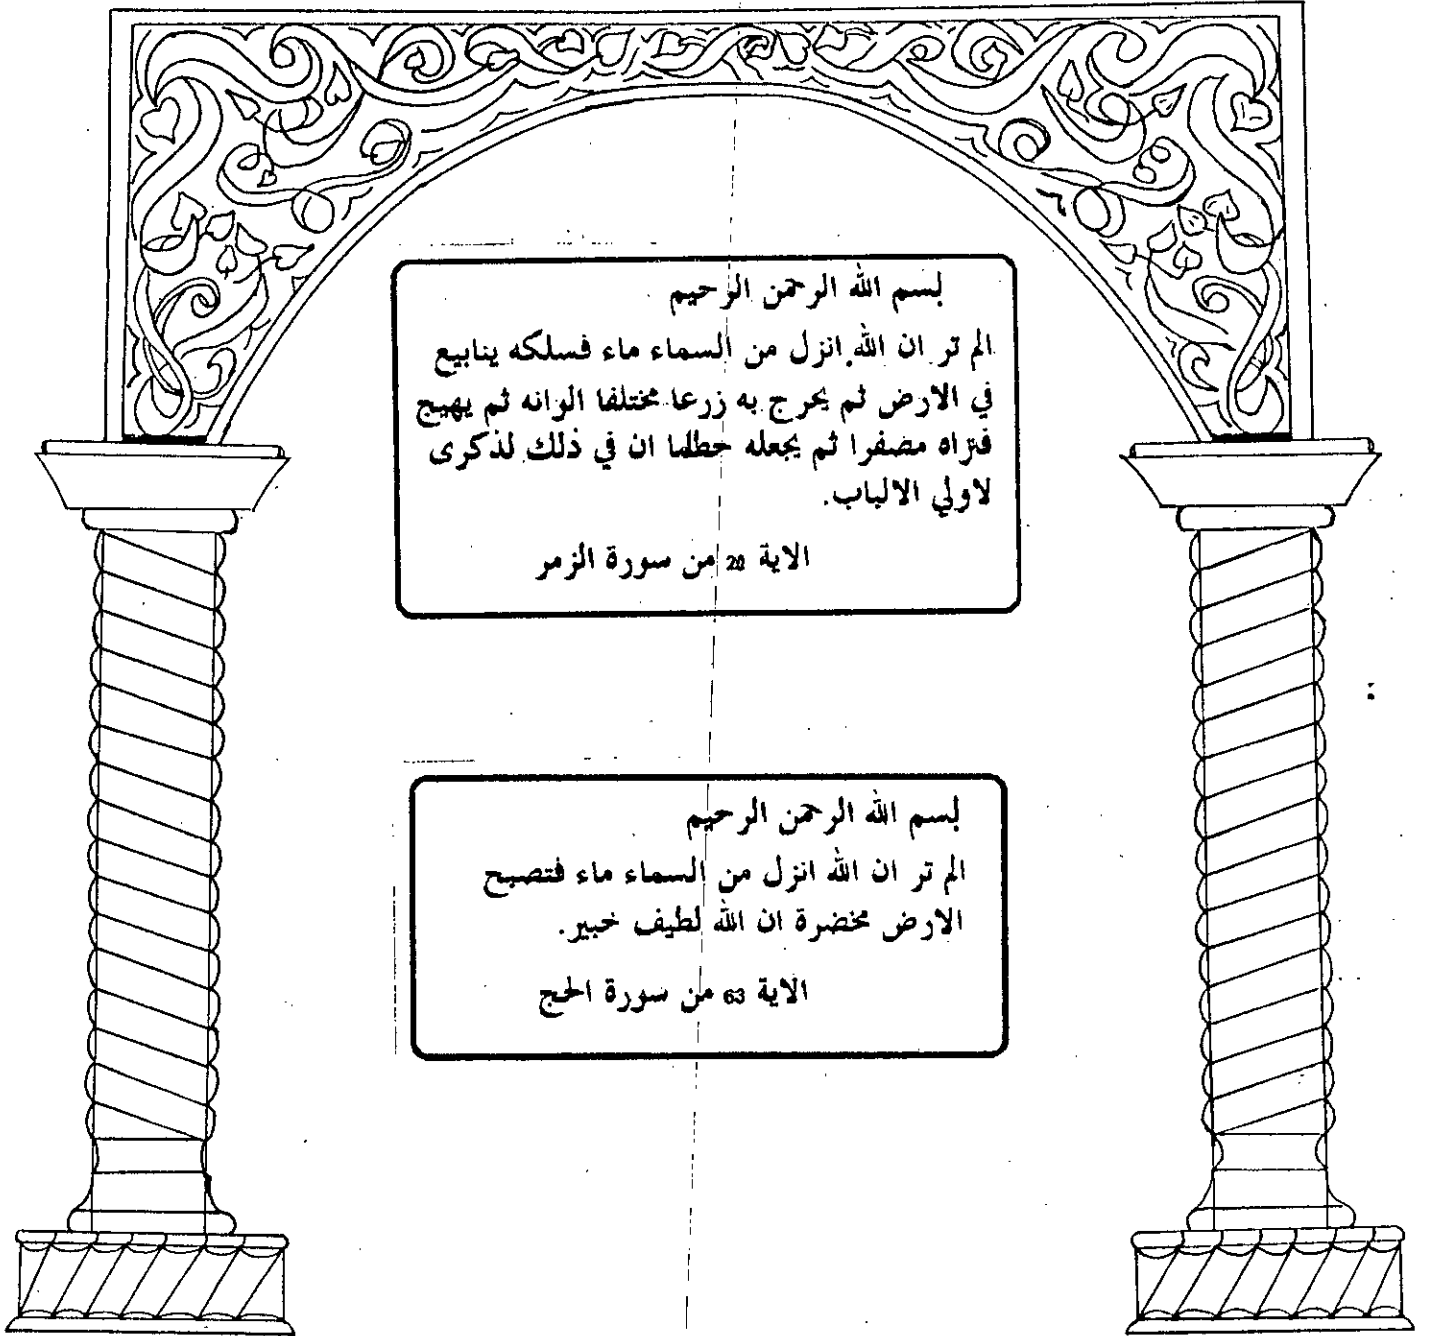 بسم الله الرحمن الرحيم
الم تر ان الله انزل من السماء ماء فسلكه ينابيع
في الارض ثم يحرج به زرعا مختلفا الوانه ثم يهيج
فتراه مصفرا ثم يجعله حطاما ان في ذلك لذكرى
لاولي الالباب.
الاية 20 من سورة الزمر
بسم الله الرحمن الرحيم
الم تر ان الله انزل من السماء ماء فتصبح
الارض مخضرة ان الله لطيف خبير.
الاية 63 من سورة الحج